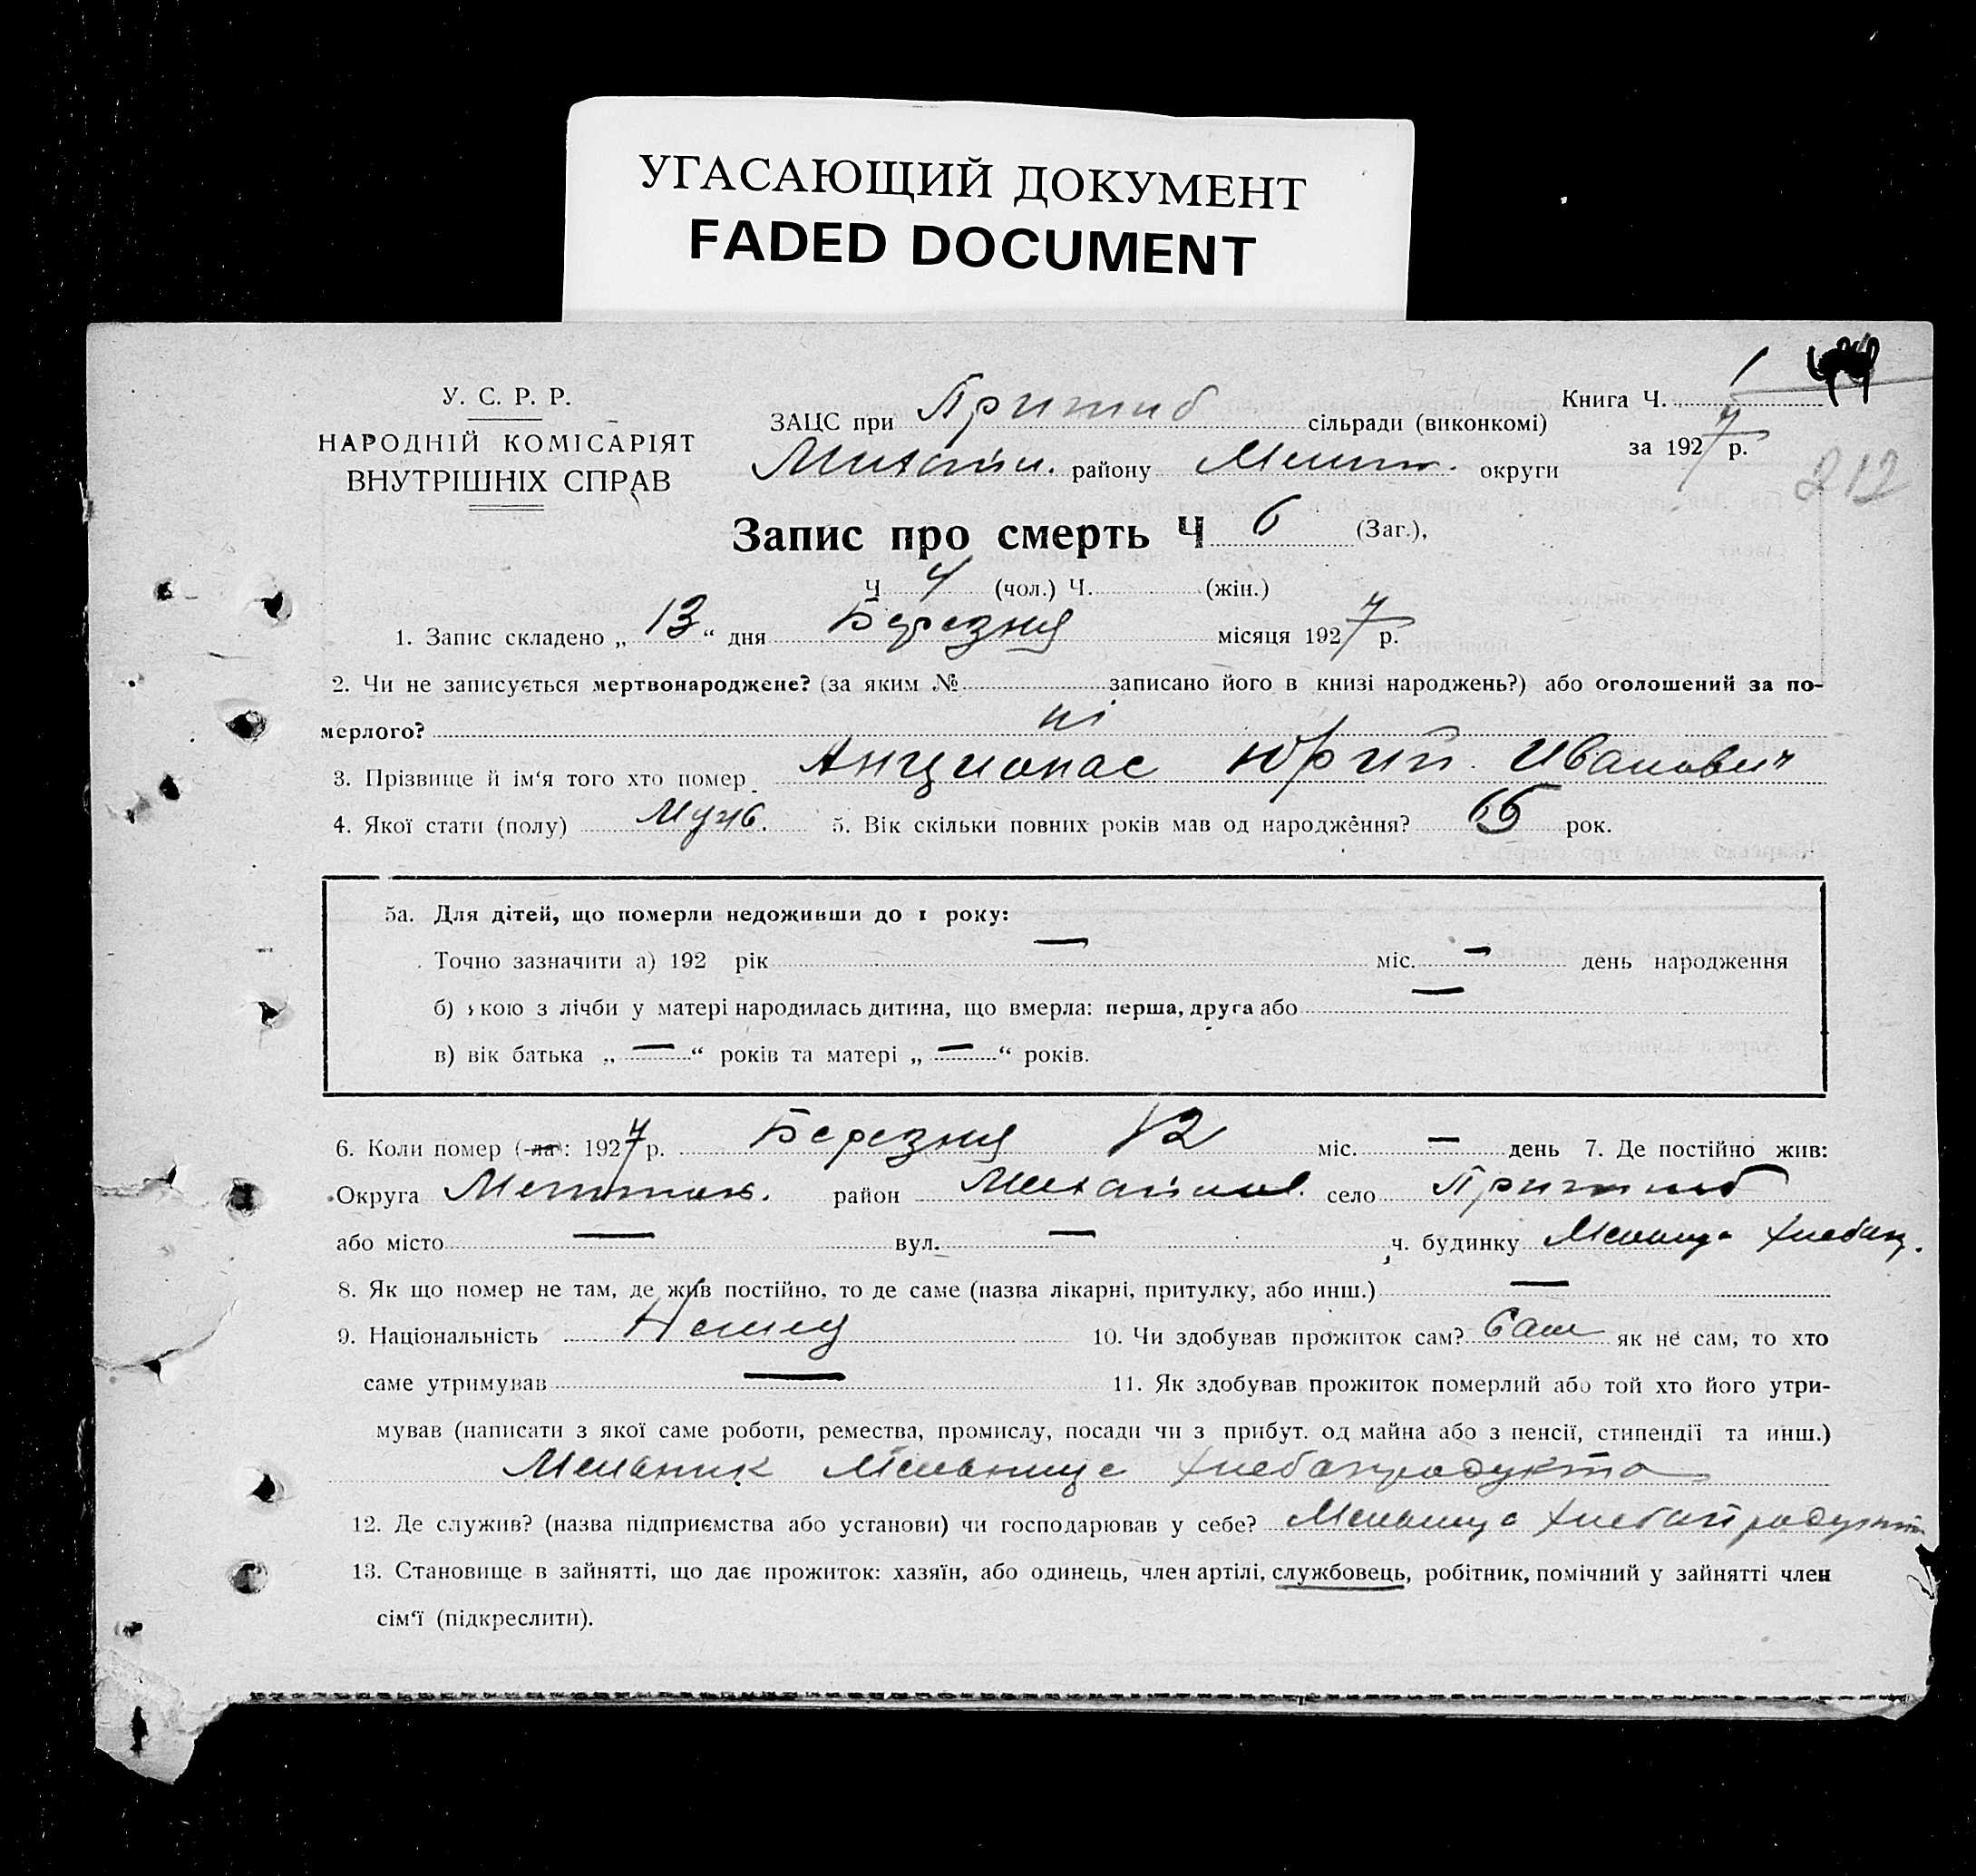 УГАСАЮЩИЙ ДОКУМЕНТ
FADED DOCUMENT
У. С. Р. Р.
НАРОДНІЙ КОМІСАРІЯТ
ВНУТРІШНІХ СПРАВ
ЗАЦС при Пришиб сільради (виконкомі)
Михайл. району Мелит. округи
Книга Ч. 1
за 1927 р.
212
Запис про смерть Ч 6 (Заг.),
Ч 4 (чол.) Ч. (жін.)
1. Запис складено „ 13 “ дня Березня місяця 1927 р.
2. Чи не записується мертвонароджене? (за яким № записано його в книзі народжень?) або оголошений за по-
мерлого? ні
3. Прізвище й ім‘я того хто помер Юрий Иванович
4. Якої стати (полу) Муж. 5. Вік скільки повних років мав од народження? рок.
5а. Для дітей, що померли недоживши до 1 року:
Точно зазначити а) 192 рік — міс. — день народження
б) кою з лічби у матері народилась дитина, що вмерла: перша, друга або —
в) вік батька „ — “ років та матері „ — “ років.
6. Коли помер (-ла): 1927 р. Березня 12 міс. — день 7. Де постійно жив:
Округа район Михайлов. село Пришиб
або місто — вул. — ч. будинку
8. Як що помер не там, де жив постійно, то де саме (назва лікарні, притулку, або инш.) —
9. Національність Немец 10. Чи здобував прожиток сам? Сам як не сам, то хто
саме утримував — 11. Як здобував прожиток померлий або той хто його утри-
мував (написати з якої саме роботи, ремества, промислу, посади чи з прибут. од майна або з пенсії, стипендії та инш.)
Мельник
12. Де служив? (назва підприємства або установи) чи господарював у себе?
13. Становище в зайнятті, що дає прожиток: хазяїн, або одинець, член артілі, службовець, робітник, помічний у зайнятті член
сім‘ї (підкреслити).